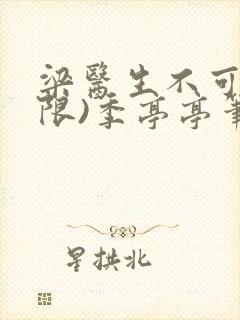 梁醫生不可
限)季亭亭筆
星拱北